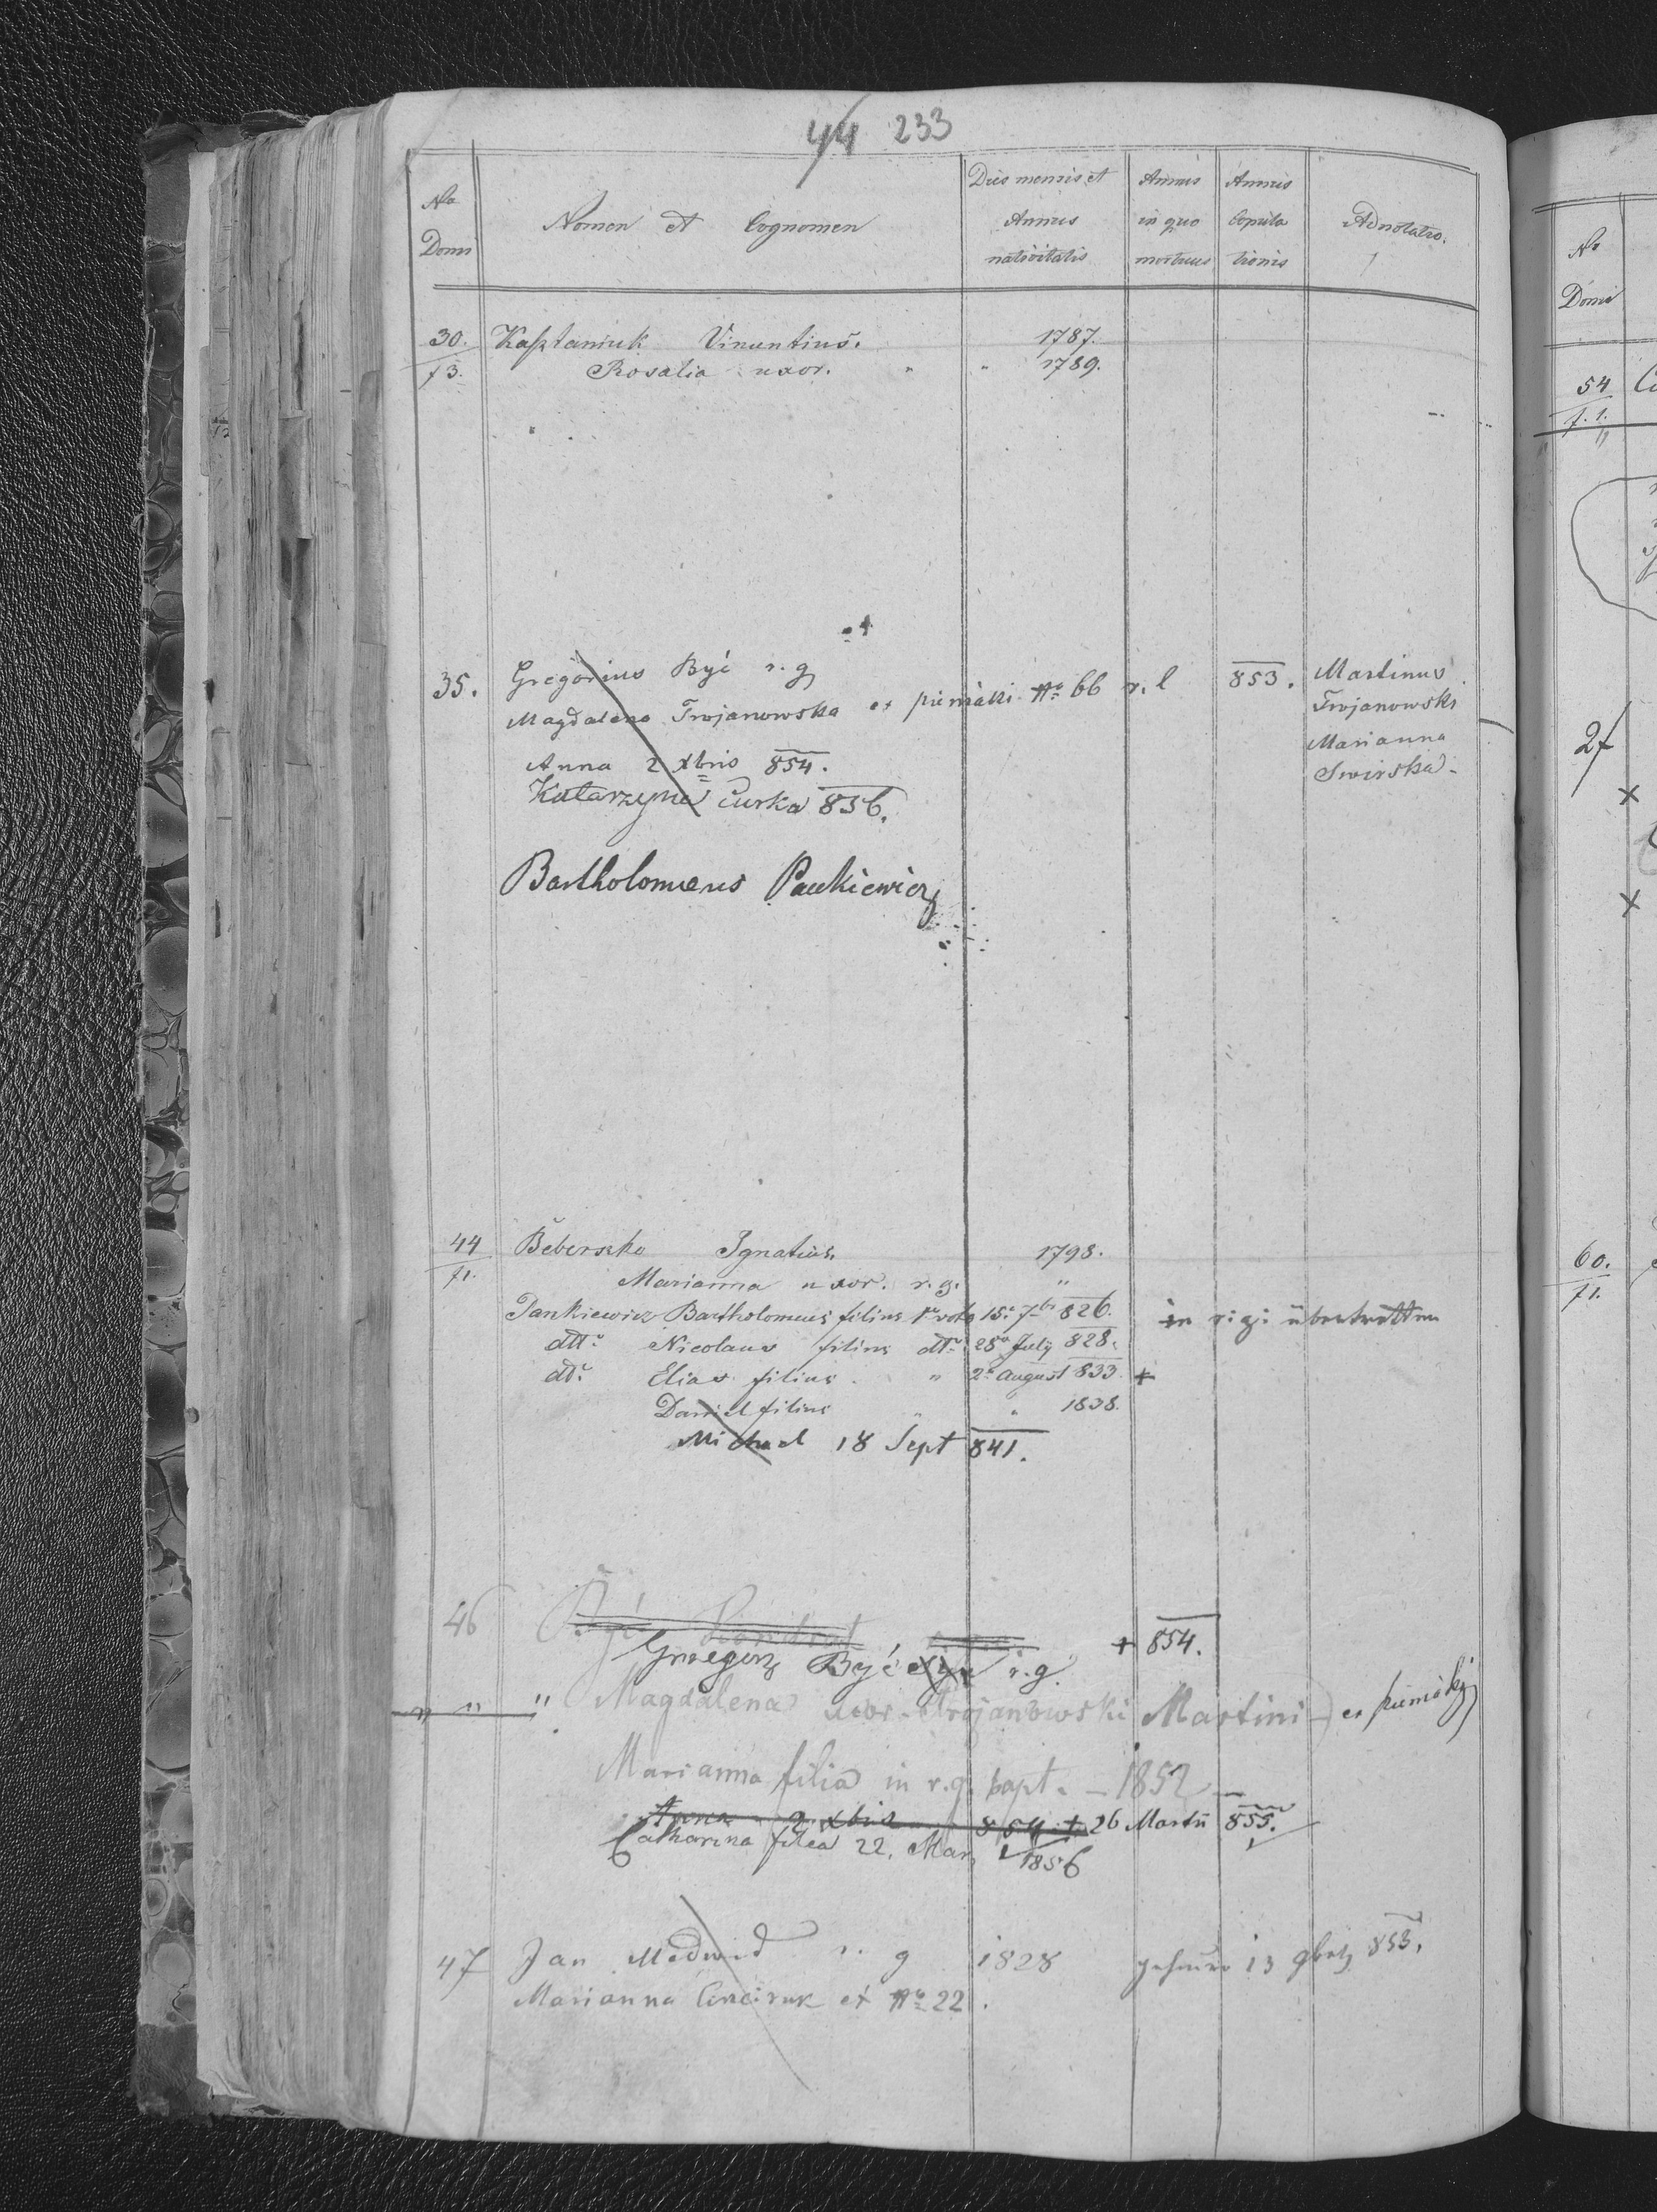 44 233
No Domi
Nomen et Cognomen
Dies mensis et Annus nativitatis
Annus in quo mortuus
Annus Copulationis
Adnotatio.
30. Kasztaniuk Vincentius. 1787.
f 3. Rosalia uxor. " " 1789.
35. Gregorius Być r. g
Magdalena Trojanowska ex pieniaki No 66 r. l 853. Martinus Trojanowski
Marianna Swirska
Anna 2 Xbris 854.
Katarzyna curka 856.
Bartholomeus Pankiewicz
44 Beberszko Ignatius. 1798.
f1. Marianna uxor. r. g. "
Pankiewicz Bartholomeus filius 1o voto 15a 7bi 826. in r. g. übertretten
dtto Nicolaus filius dtto 28a July 828.
dto Elias filius " 2a August 1833. +
Daniel filius " " 1838.
Michael 18 Sept 841.
46 Być
Grzegorz Być r. g. + 854.
" " " Magdalena uxor. Trojanowski Martini ex pieniaki
Marianna filia in r. g. bapt. - 1852 -
Anna 2 Xbris 854 + 26 Martii 855.
Catharina filia 22. Mar 1856
47 Jan Medwid r. g 1828 13 853.
Marianna ex No 22.
No
Domi
54
f. 1.
27
x
x
60.
f1.